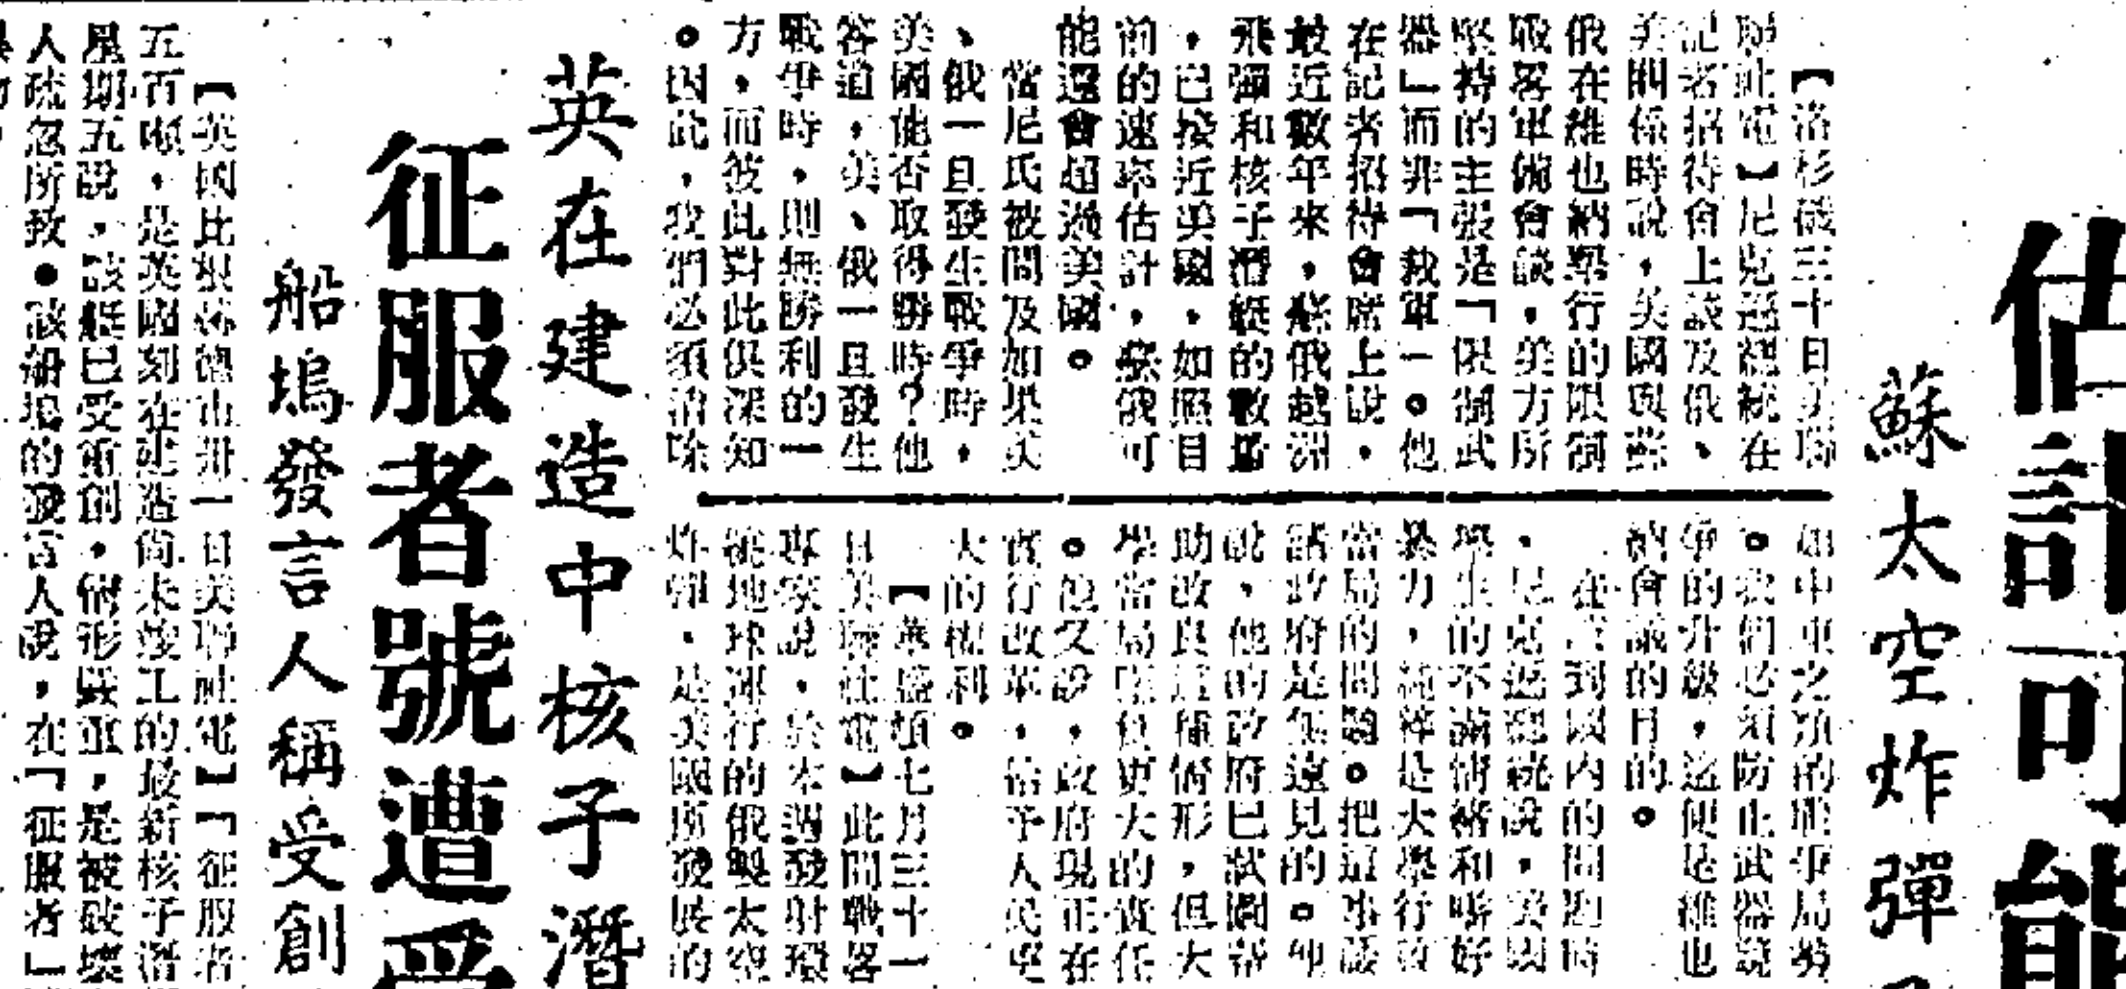 估計可能
蘇太空炸彈
【洛杉磯三十日美聯
聯社電】尼克遜總統在
記者招待會上談及俄、
美關係時說，美國與蘇
俄在維也納舉行的限制
戰畧軍備會談，美方所
堅持的主張是「限制武
器」而非「裁軍」。他
在記者招待會席上說，
最近數年來，蘇俄越洲
飛彈和核子潛艇的數量
，已接近美國，如照目
前的速率估計，蘇俄可
能還會超過美國。
當尼氏被問及如果美
、俄一旦發生戰爭時，
美國能否取得勝時？他
答道，美、俄一旦發生
戰爭時，則無勝利的一
方，而彼此對此俱深知
。因此，我們必須消除
如中東之類的戰爭局勢
。我們必須防止武器競
爭的升級，這便是維也
納會議的目的。
在談到國內的問題時
，尼克遜總統說，美國
學生的不滿情緒和嗜好
暴力，純粹是大學行政
當局的問題。把這事諉
諸政府是無遠見的。他
說，他的政府已試圖幫
助改良這種情形，但大
學當局應負更大的責任
。他又說，政府現正在
實行改革，給予人民更
大的權利。
【華盛頓七月三十一
日美聯社電】此間戰畧
專家說，於本週發射環
繞地球運行的俄製太空
炸彈，是美國原發展的
英在建造中核子潛
征服者號遭受
船塢發言人稱受創
【英國比根赫德市卅一日美聯社電】「征服者
五百噸，是英國刻在建造尚未竣工的最新核子潛
星期五說，該艇已受重創，情形嚴重，是被破壞
人疏忽所致●該船塢的發言人說，在「征服者」